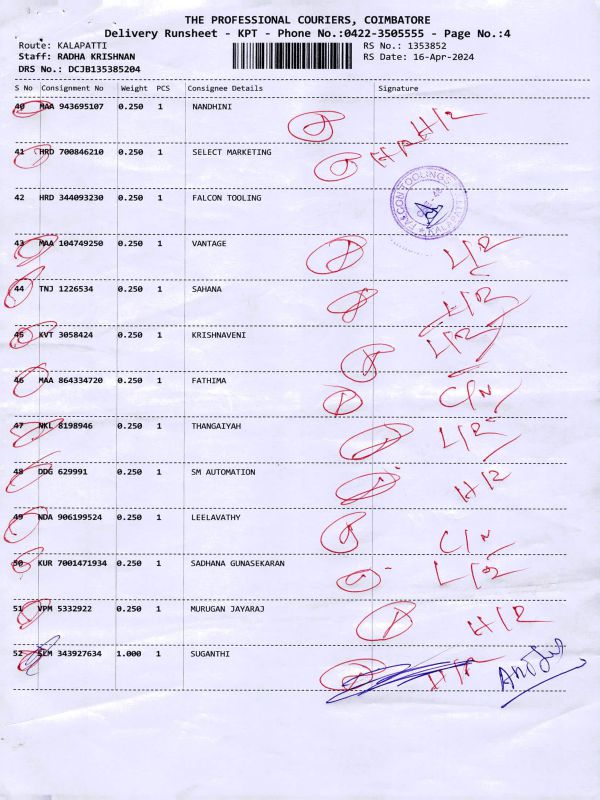 THE PROFESSIONAL COURIERS, COIMBATORE
Delivery Runsheet - KPT - Phone No.:0422-3505555 - Page No.:4
Route: KALAPATTI RS No.: 1353852
Staff: RADHA KRISHNAN RS Date: 16-Apr-2024
DRS No.: DCJB135385204
S No Consignment No Weight PCS Consignee Details Signature
40 MAA 943695107 0.250 1 NANDHINI H/R
41 HRD 700846210 0.250 1 SELECT MARKETING
42 HRD 344093230 0.250 1 FALCON TOOLING
43 MAA 104749250 0.250 1 VANTAGE L/R
44 TNJ 1226534 0.250 1 SAHANA L/R
45 KVT 3058424 0.250 1 KRISHNAVENI L/R
46 MAA 864334720 0.250 1 FATHIMA C/N
47 NKL 8198946 0.250 1 THANGAIYAH L/R
48 DDG 629991 0.250 1 SM AUTOMATION H/R
49 NDA 906199524 0.250 1 LEELAVATHY C/N
50 KUR 7001471934 0.250 1 SADHANA GUNASEKARAN L/R
51 VPM 5332922 0.250 1 MURUGAN JAYARAJ H/R
52 SLM 343927634 1.000 1 SUGANTHI H/R